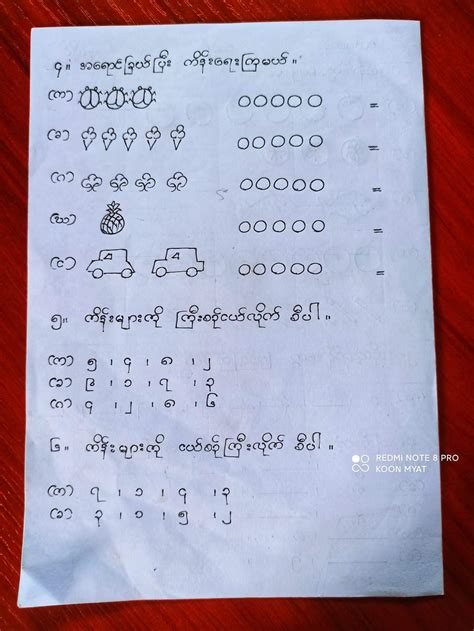 ၄။ အရောင်ခြယ်ပြီး ကိန်းရေးကြမယ်။
(က) =
(ခ) =
(ဂ) =
(ဃ) =
(င) =
၅။ ကိန်းများကို ကြီးစဉ်ငယ်လိုက် စီပါ။
(က) ၅ ၊ ၄ ၊ ၈ ၊ ၂
(ခ) ၉ ၊ ၁ ၊ ၇ ၊ ၃
(ဂ) ၄ ၊ ၂ ၊ ၈ ၊ ၆
၆။ ကိန်းများကို ငယ်စဉ်ကြီးလိုက် စီပါ။
(က) ၇ ၊ ၁ ၊ ၄ ၊ ၃
(ခ) ၃ ၊ ၁ ၊ ၅ ၊ ၂
REDMI NOTE 8 PRO
KOON MYAT